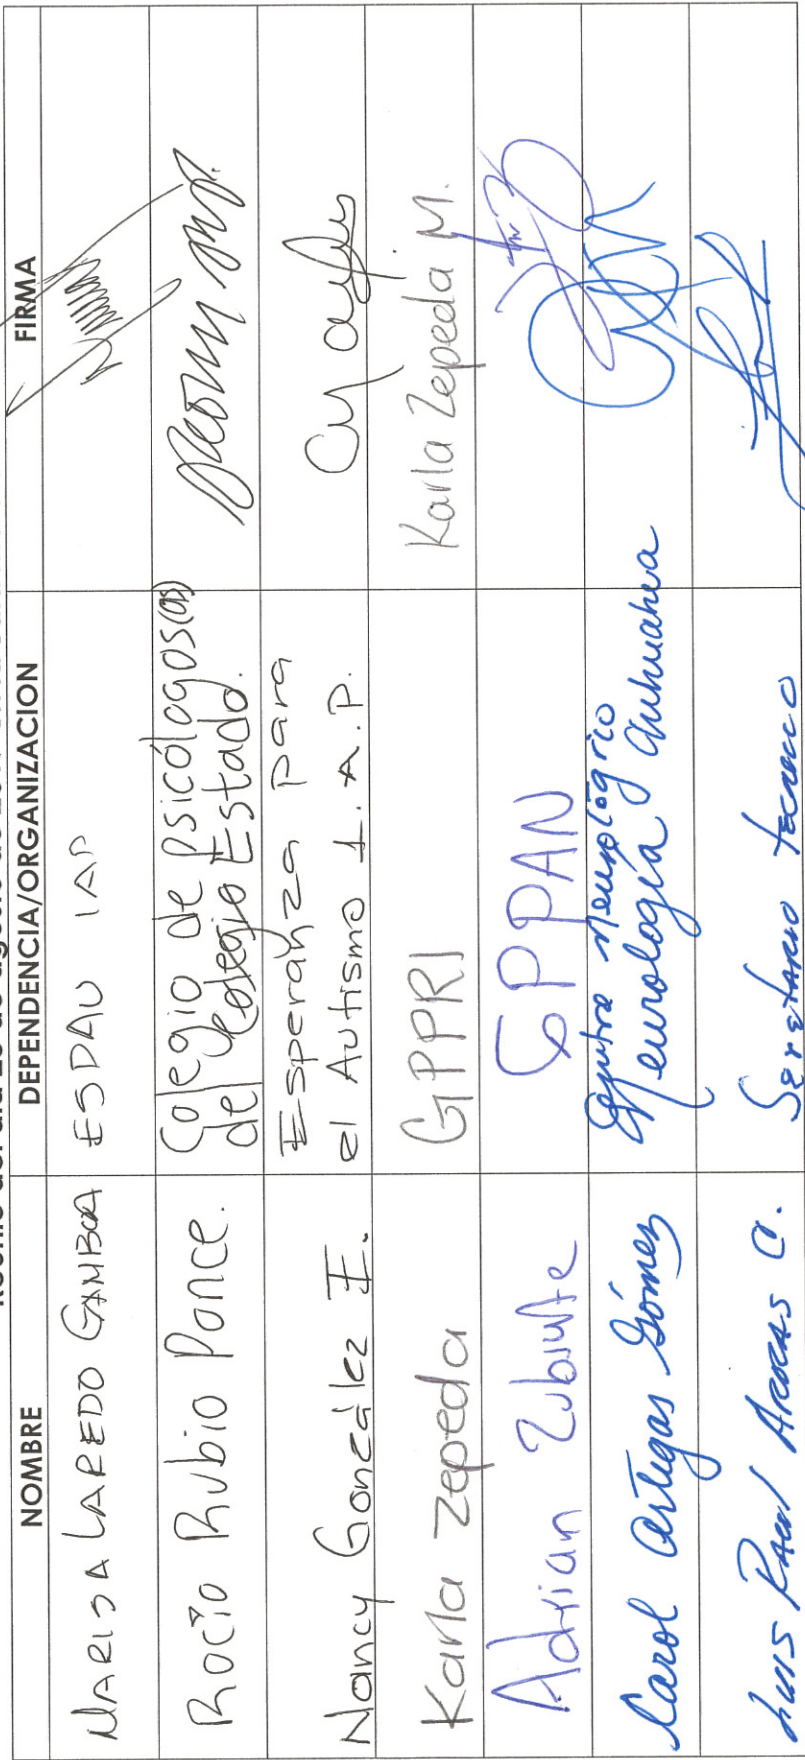 NOMBRE DEPENDENCIA/ORGANIZACION FIRMA
MARISA LAREDO GAMBOA ESPAU IAP
Rocío Rubio Ponce. Colegio de psicólogos(as)
del Colegio Estado.
Nancy González E. Esperanza para
el Autismo I.A.P.
Karla Zepeda GPPRI Karla Zepeda M.
Adrian GPPAN
Carol Artigas Gómez Centro Neurológico
Neurología Chihuahua
Luis Raul C. Secretario Tecnico